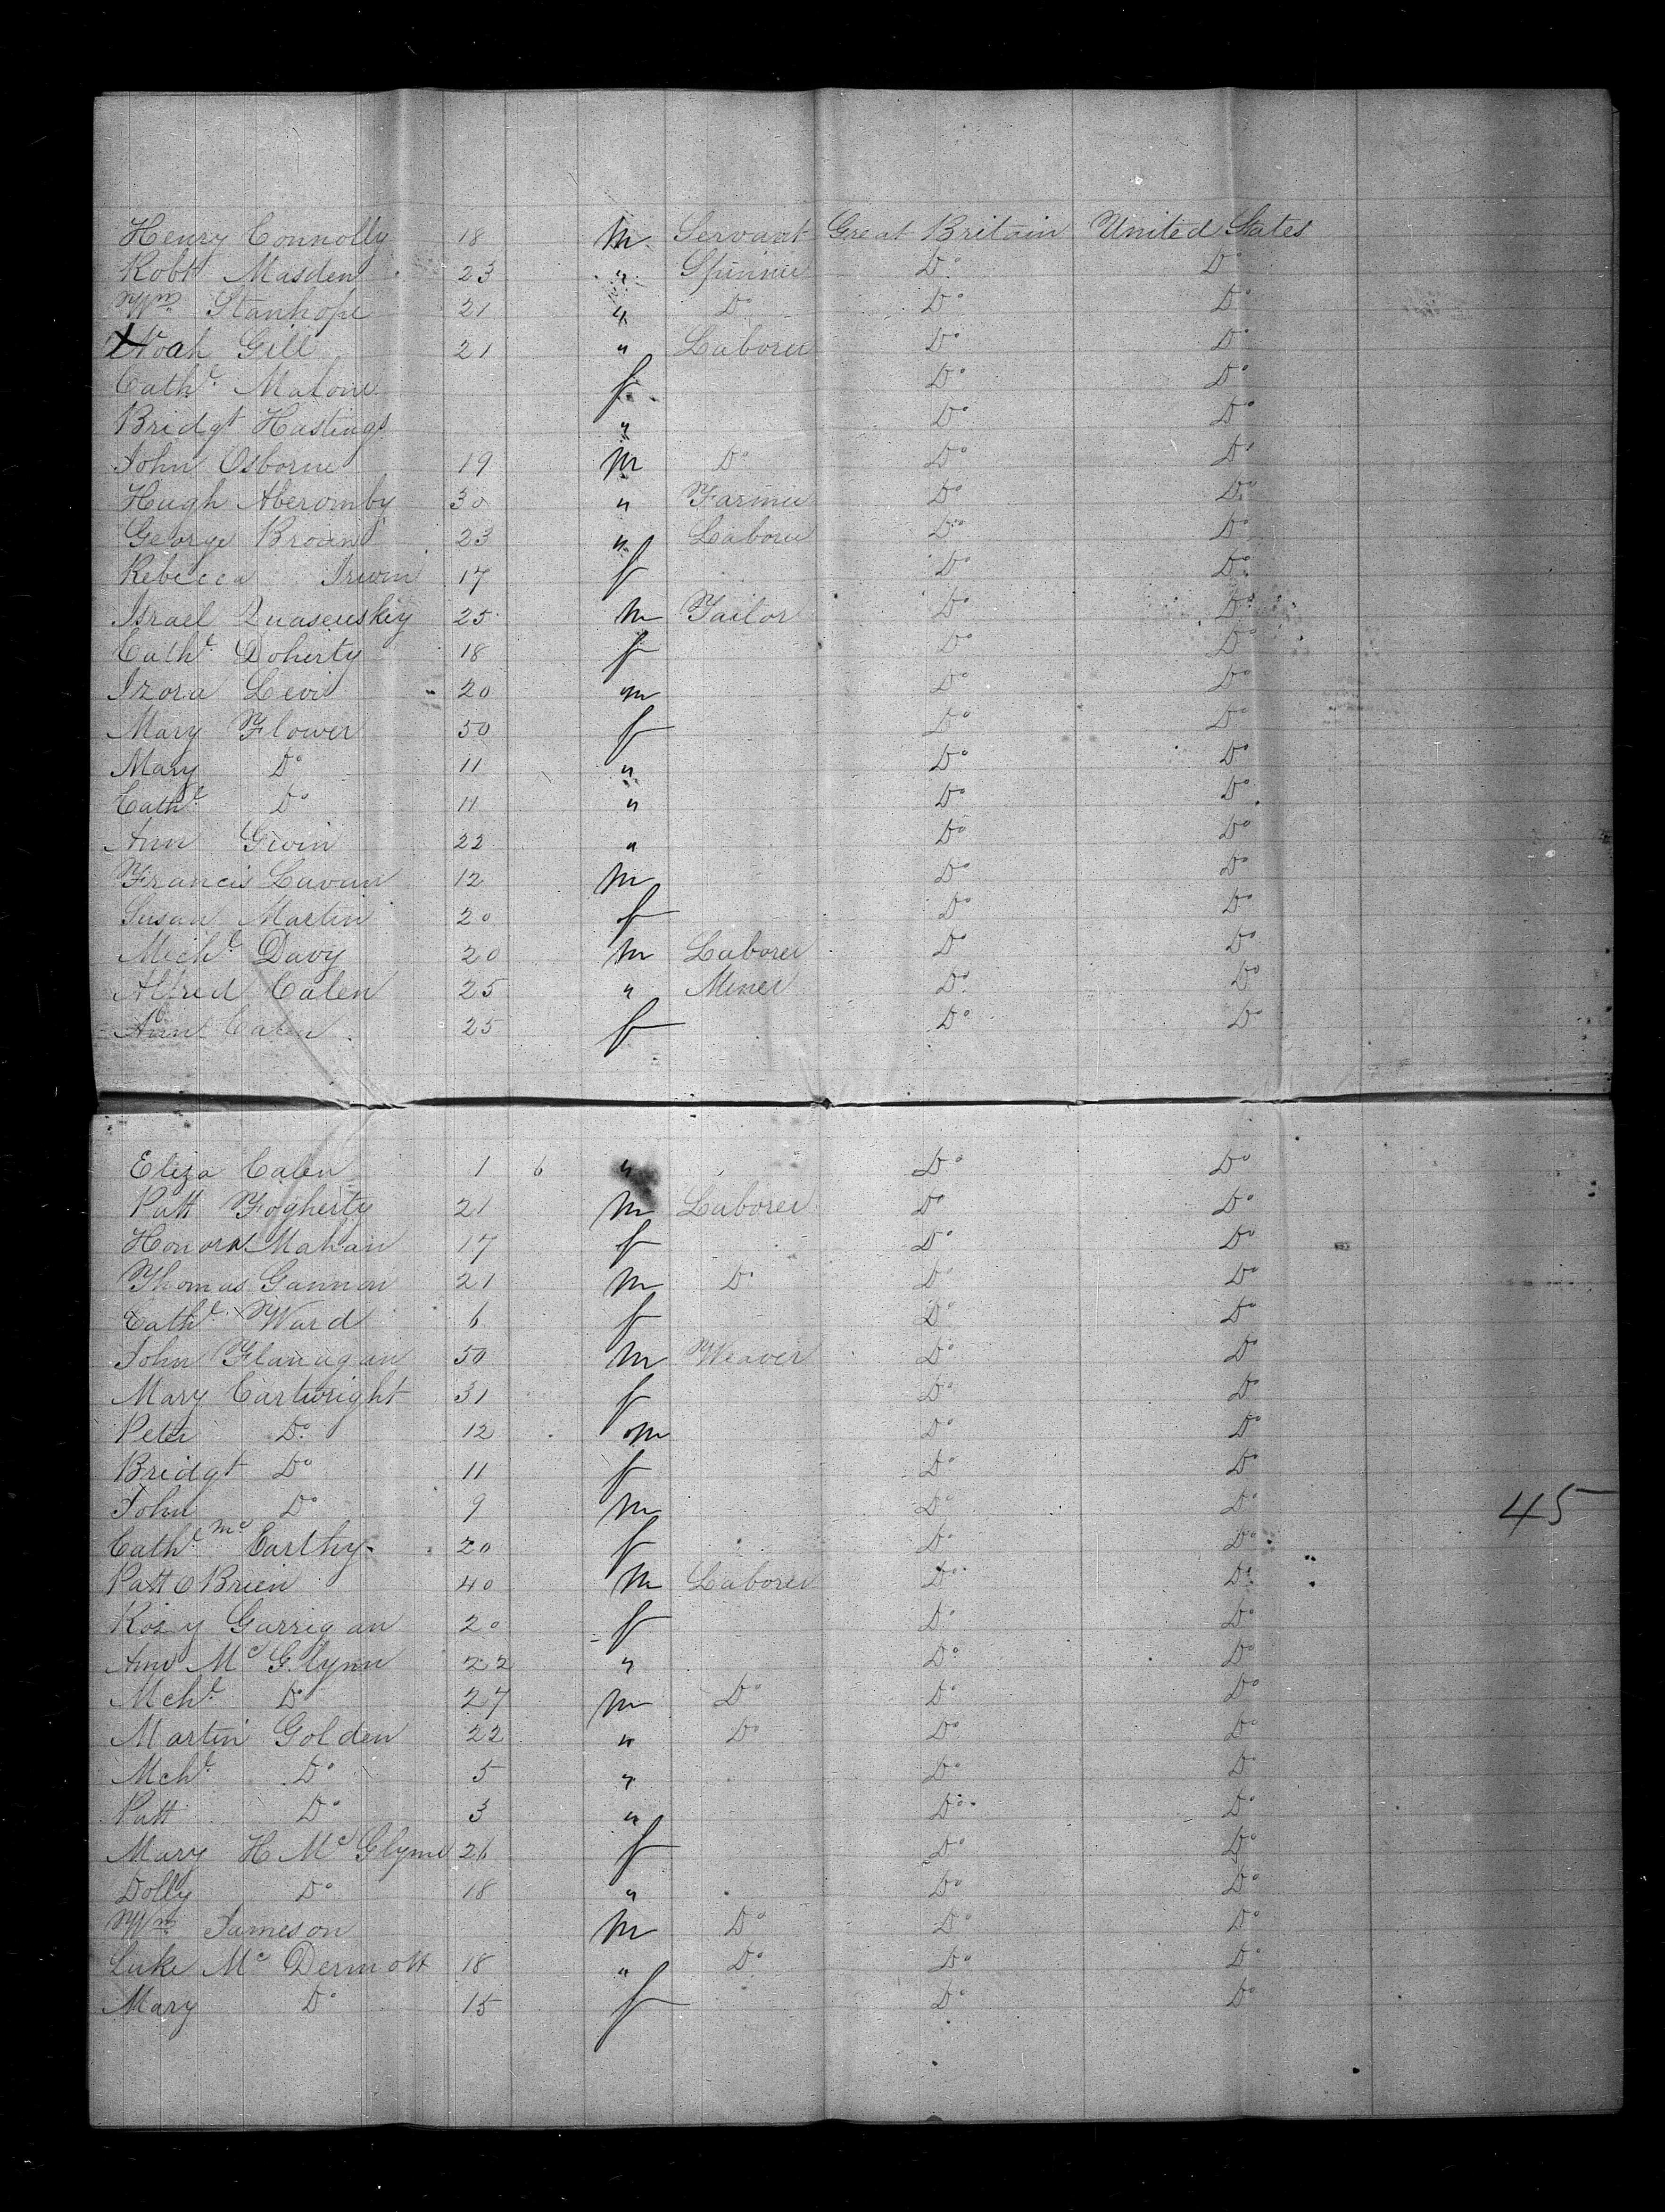 Henry Connolly 18 m Servant Great Britain United States
Robt Masden 23 " Spinner Do Do
Wm Stanhope 21 " Do Do Do
X Noah Gill 21 " Laborer Do Do
Cathe Malone f Do Do
Bridgt Hastings " Do Do
John Osborne 19 m Do Do Do
Hugh Aberomby 30 " Farmer Do Do
George Brown 23 " Laborer Do Do
Rebecca Irwin 17 f Do Do
Israel Quaseuskiy 25 m Tailor Do Do
Cathe Doherty 18 f Do Do
Izora Levi 20 m Do Do
Mary Flower 50 f Do Do
Mary Do 11 " Do Do
Cathe Do 11 " Do Do
Ann Givin 22 " Do Do
Francis Lavun 12 m Do Do
Susan Martin 20 f Do Do
Michl Davy 20 m Laborer Do Do
Alfred Calen 25 " Miner Do Do
Ann Calen 25 f Do Do
Eliza Calen 1 6 " Do Do
Patt Fogherty 21 m Laborer Do Do
Honora Mahan 17 f Do Do
Thomas Gannon 21 m Do Do Do
Cathe Ward 6 f Do Do
John Flanagan 50 m Weaver Do Do
Mary Cartwright 31 f Do Do
Peter Do 12 m Do Do
Bridgt Do 11 f Do Do
John Do 9 m Do Do 45
Cathe Mc Carthy 20 f Do Do
Patt O Brien 40 m Laborer Do Do
Rosy Garrigan 20 f Do Do
Ann Mc Glynn 22 " Do Do
Mchl Do 27 m Do Do Do
Martin Golden 22 " Do Do Do
Mchl Do 5 " Do Do
Patt Do 3 " Do Do
Mary H Mc Glynn 26 f Do Do
Dolly Do 18 " Do Do
Wm Jameson m Do Do Do
Luke Mc Dermott 18 " Do Do Do
Mary Do 15 f Do Do